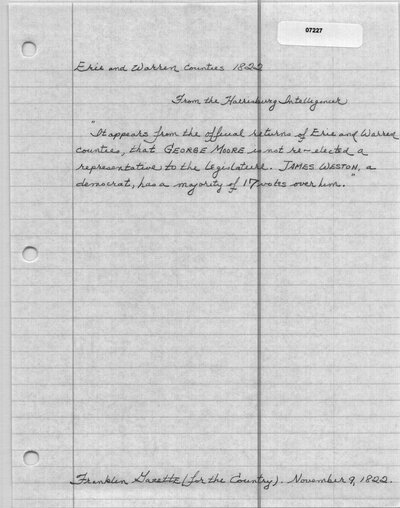 07227
Erie and Warren Counties 1822
From the Harrisburg Intelligencer
"It appears from the official returns of Erie and Warren
counties, that GEORGE MOORE is not re-elected a
representative to the legislature. JAMES WESTON, a
democrat, has a majority of 17 votes over him."
Franklin Gazette (for the Country). November 9, 1822.